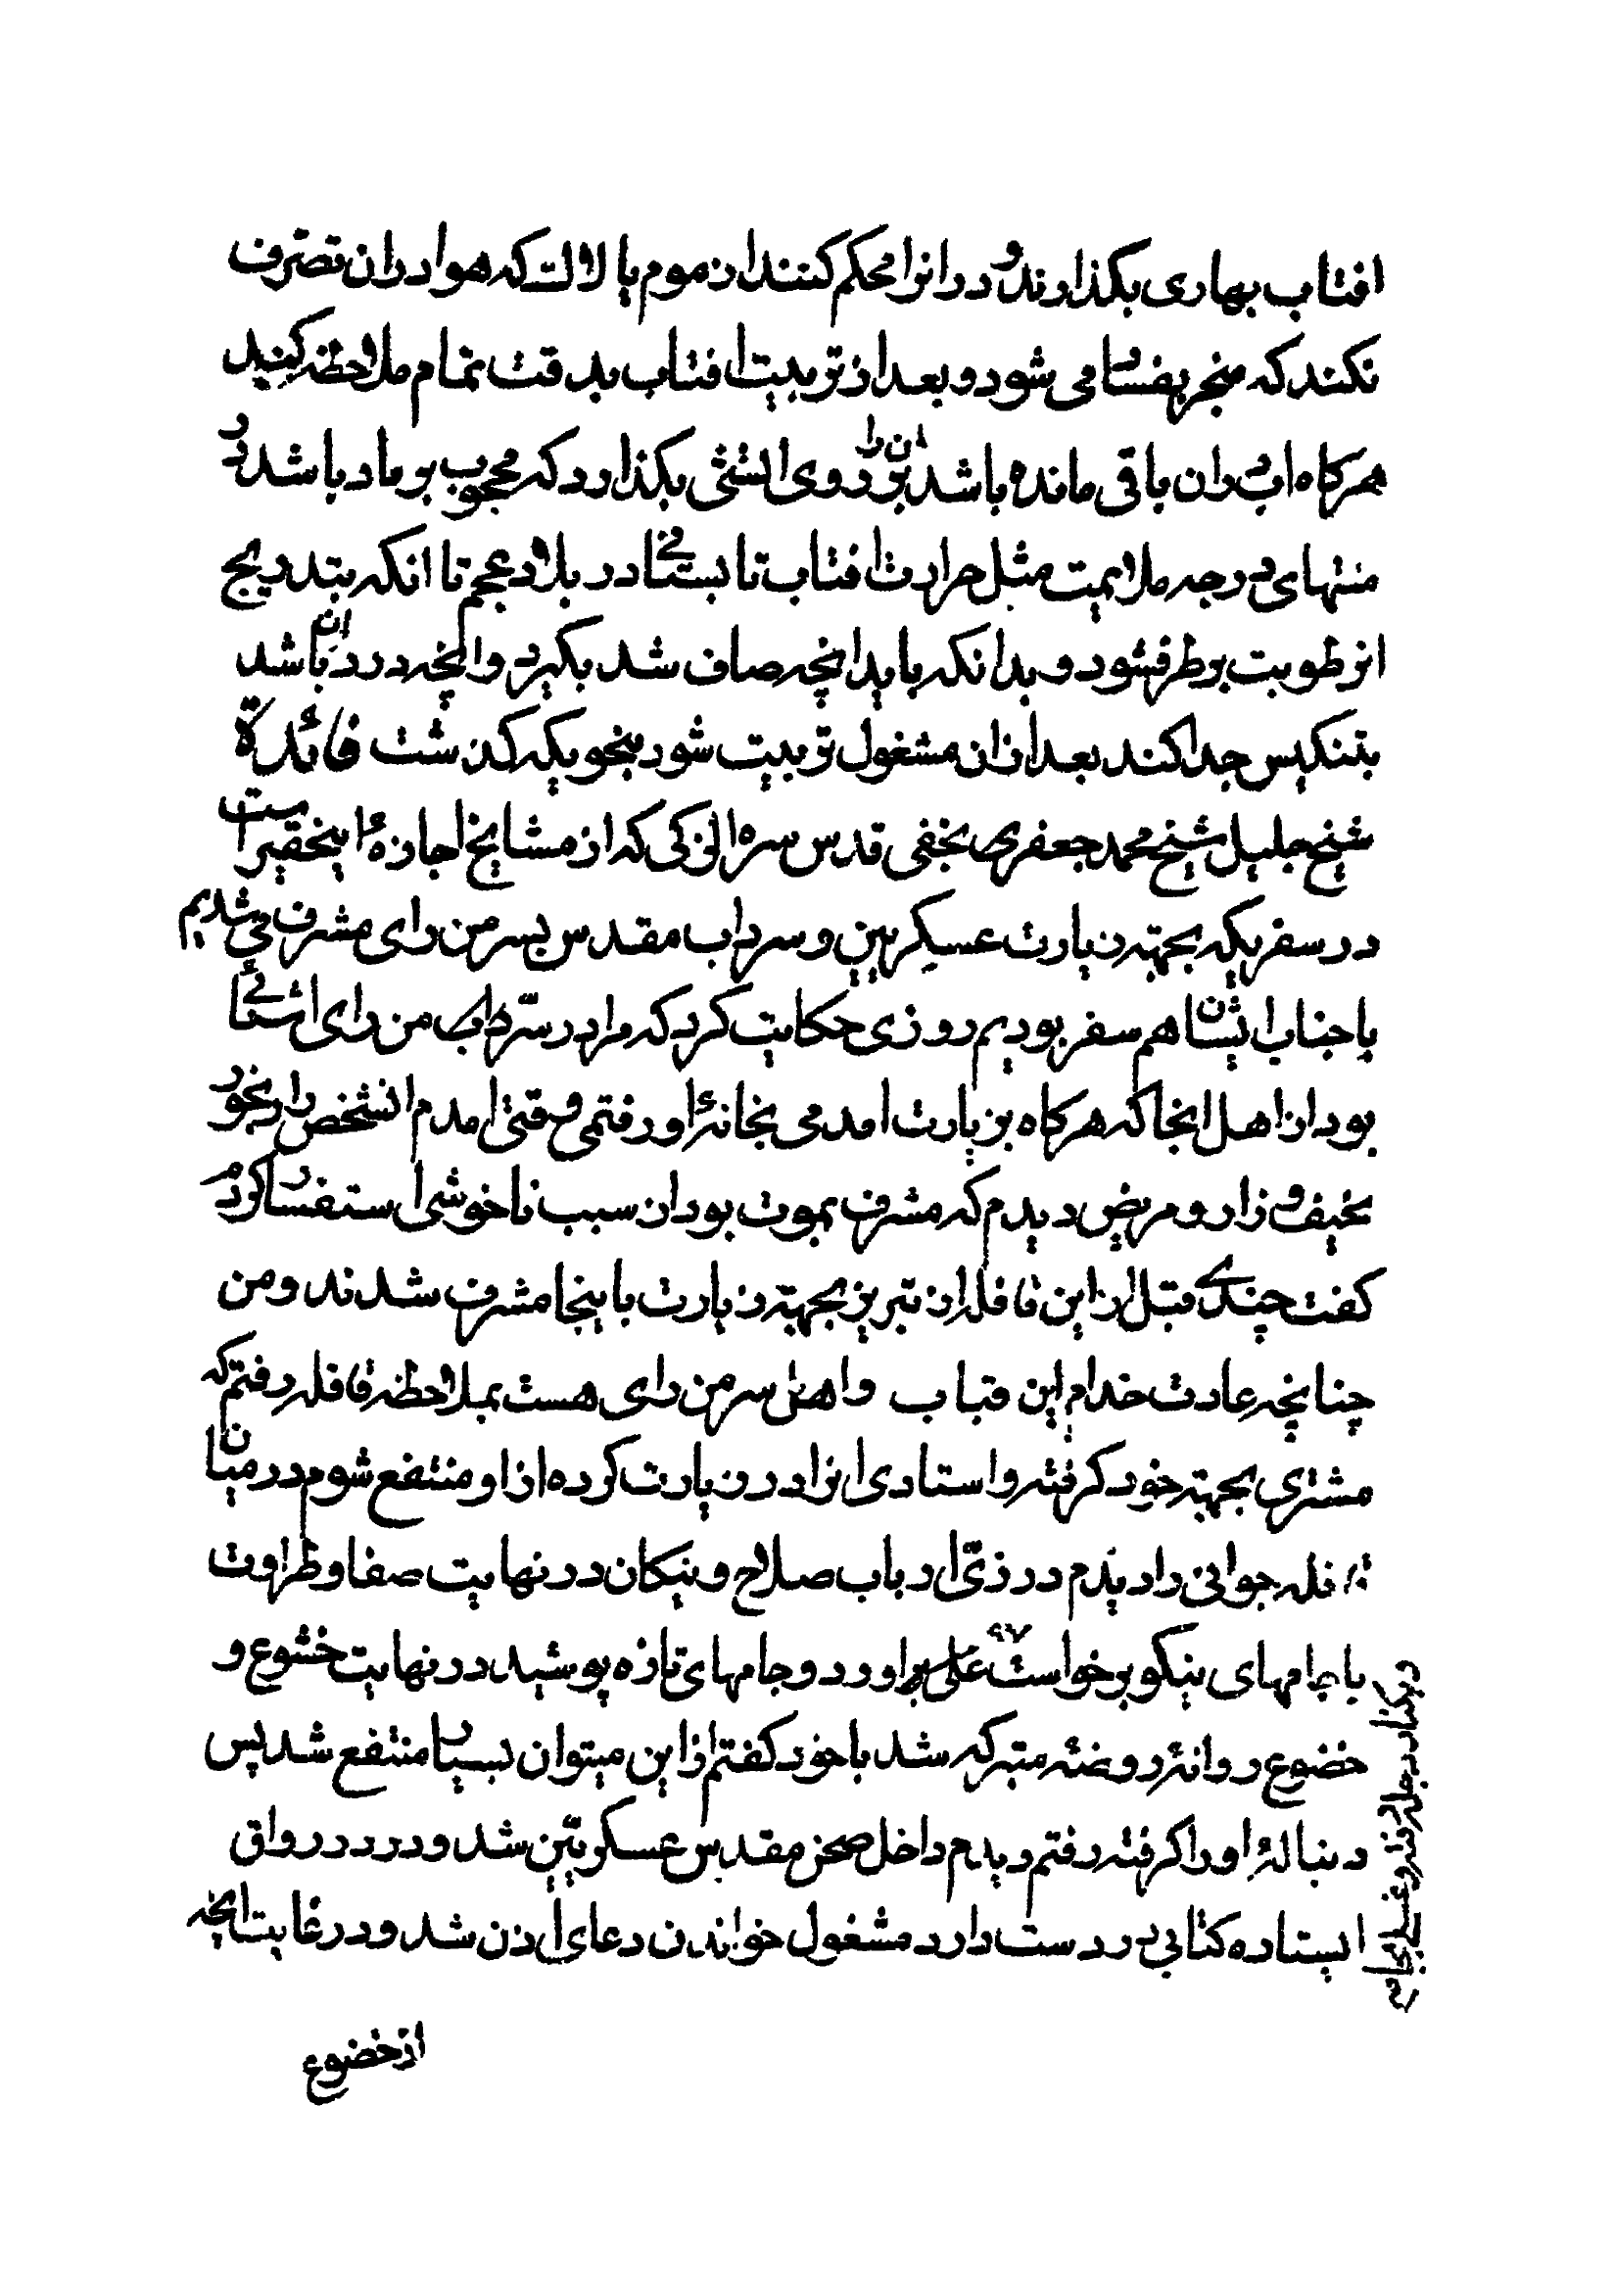 افتاب بهاری بکذارند و در انرا محکم کنند از موم یا لاک که هوا در ان تصرف
نکند که منجر بفساد می شود و بعد از تربیت افتاب بدقت تمام ملاحظه کنید
هرکاه ابی در ان باقی مانده باشد ان را بر روی اتشی بکذارد که محجوب برماد باشد در
منتهای درجه ملایمت مثل حرارت افتاب تابستانی در بلاد عجم تا انکه بتدریج
ان رطوبت برطرف شود و بدانکه باید انچه صاف شد بکیرد و انچه در درد ان باشد
بتنکیس جدا کند بعد از ان مشغول تربیت شود بنحویکه کذشت فائدة
شیخ جلیل شیخ محمد جعفر نجفی قدس سره الزکی که از مشایخ اجازهٔ اینحقیر است
در سفریکه بجهته زیارت عسکریین و سرداب مقدس بسر من رای مشرف می شدیم
با جناب ایشان هم سفر بودیم روزی حکایت کرد که مرا در سرّ من رای اشنائی
بود از اهل انجا که هرکاه بزیارت امدمی بخانهٔ او رفتمی وقتی امدم انشخص را رنجور
نحیف و زار و مریض دیدم که مشرف بموت بود از سبب ناخوشی استفسار کردم
کفت چندی قبل از این قافله از تبریز بجهته زیارت باینجا مشرف شدند و من
چنانچه عادت خدام این قباب و اهل سر من رای هست بملاحظه قافله رفتم که
مشتری بجهته خود کرفته و استادی انرا در زیارت کرده از او منتفع شوم در میان
قافله جوانی را دیدم در زیّ ارباب صلاح و نیکان در نهایت صفا و طراوت
با جامهای نیکو برخواست غسلی براورد و جامهای تازه پوشید در نهایت خشوع و
خضوع روانهٔ روضهٔ متبرکه شد با خود کفتم از این میتوان بسیار منتفع شد پس
دنبالهٔ او را کرفته رفتم دیدم داخل صحن مقدس عسکریّین شد و در در رواق
ایستاده کتابی در دست دارد مشغول خواندن دعای اذن شد و در غایت انچه
از خضوع
در کنار دجله رفته و غسلی بجای